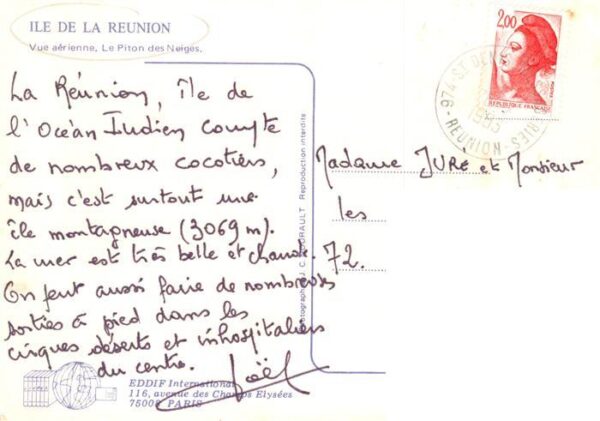 ILE DE LA REUNION
Vue aérienne, Le Piton des Neiges.
La Réunion, île de
l'Océan Indien compte
de nombreux cocotiers,
mais c'est surtout une
île montagneuse (3069 m).
La mer est très belle et chaude.
On peut aussi faire de nombreuses
sorties à pied dans les
cirques déserts et inhospitaliers
du centre. Joël
EDDIF International
116, avenue des Champs Elysées
75008 PARIS
Reproduction interdite
2,00
REPUBLIQUE FRANÇAISE
974-ST DEN
REUNION
Madame JURÉ et Monsieur
les
72.